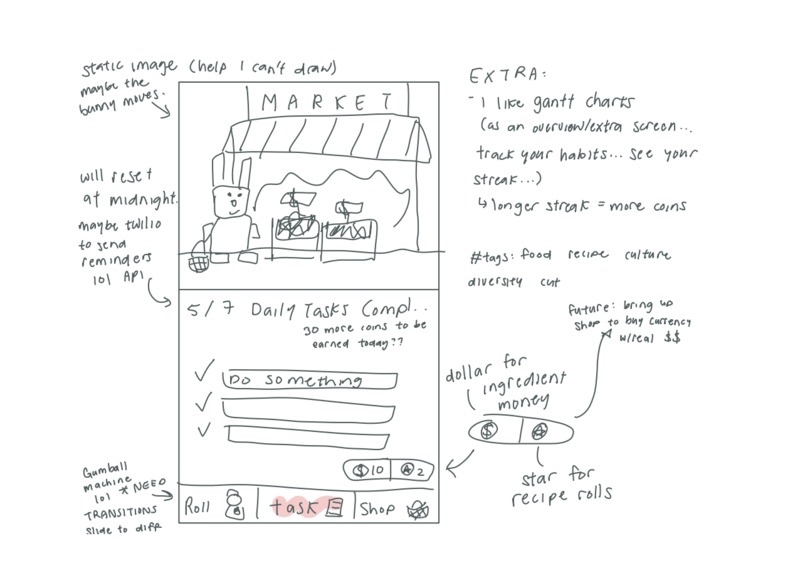 static image (help I can't draw)
maybe the
bunny moves.
MARKET
will reset
at midnight.
maybe twilio
to send
reminders
lol API
5/7 Daily Tasks Compl..
30 more coins to be
earned today??
Do something
$10
2
Gumball
machine
lol * NEED
TRANSITIONS
slide to diff
Roll
task
Shop
EXTRA:
- I like gantt charts
(as an overview/extra screen...
track your habits... see your
streak...)
↳ longer streak = more coins
#tags: food recipe culture
diversity cut
future: bring up
shop to buy currency
w/real $$
dollar for
ingredient
money
$
star for
recipe rolls